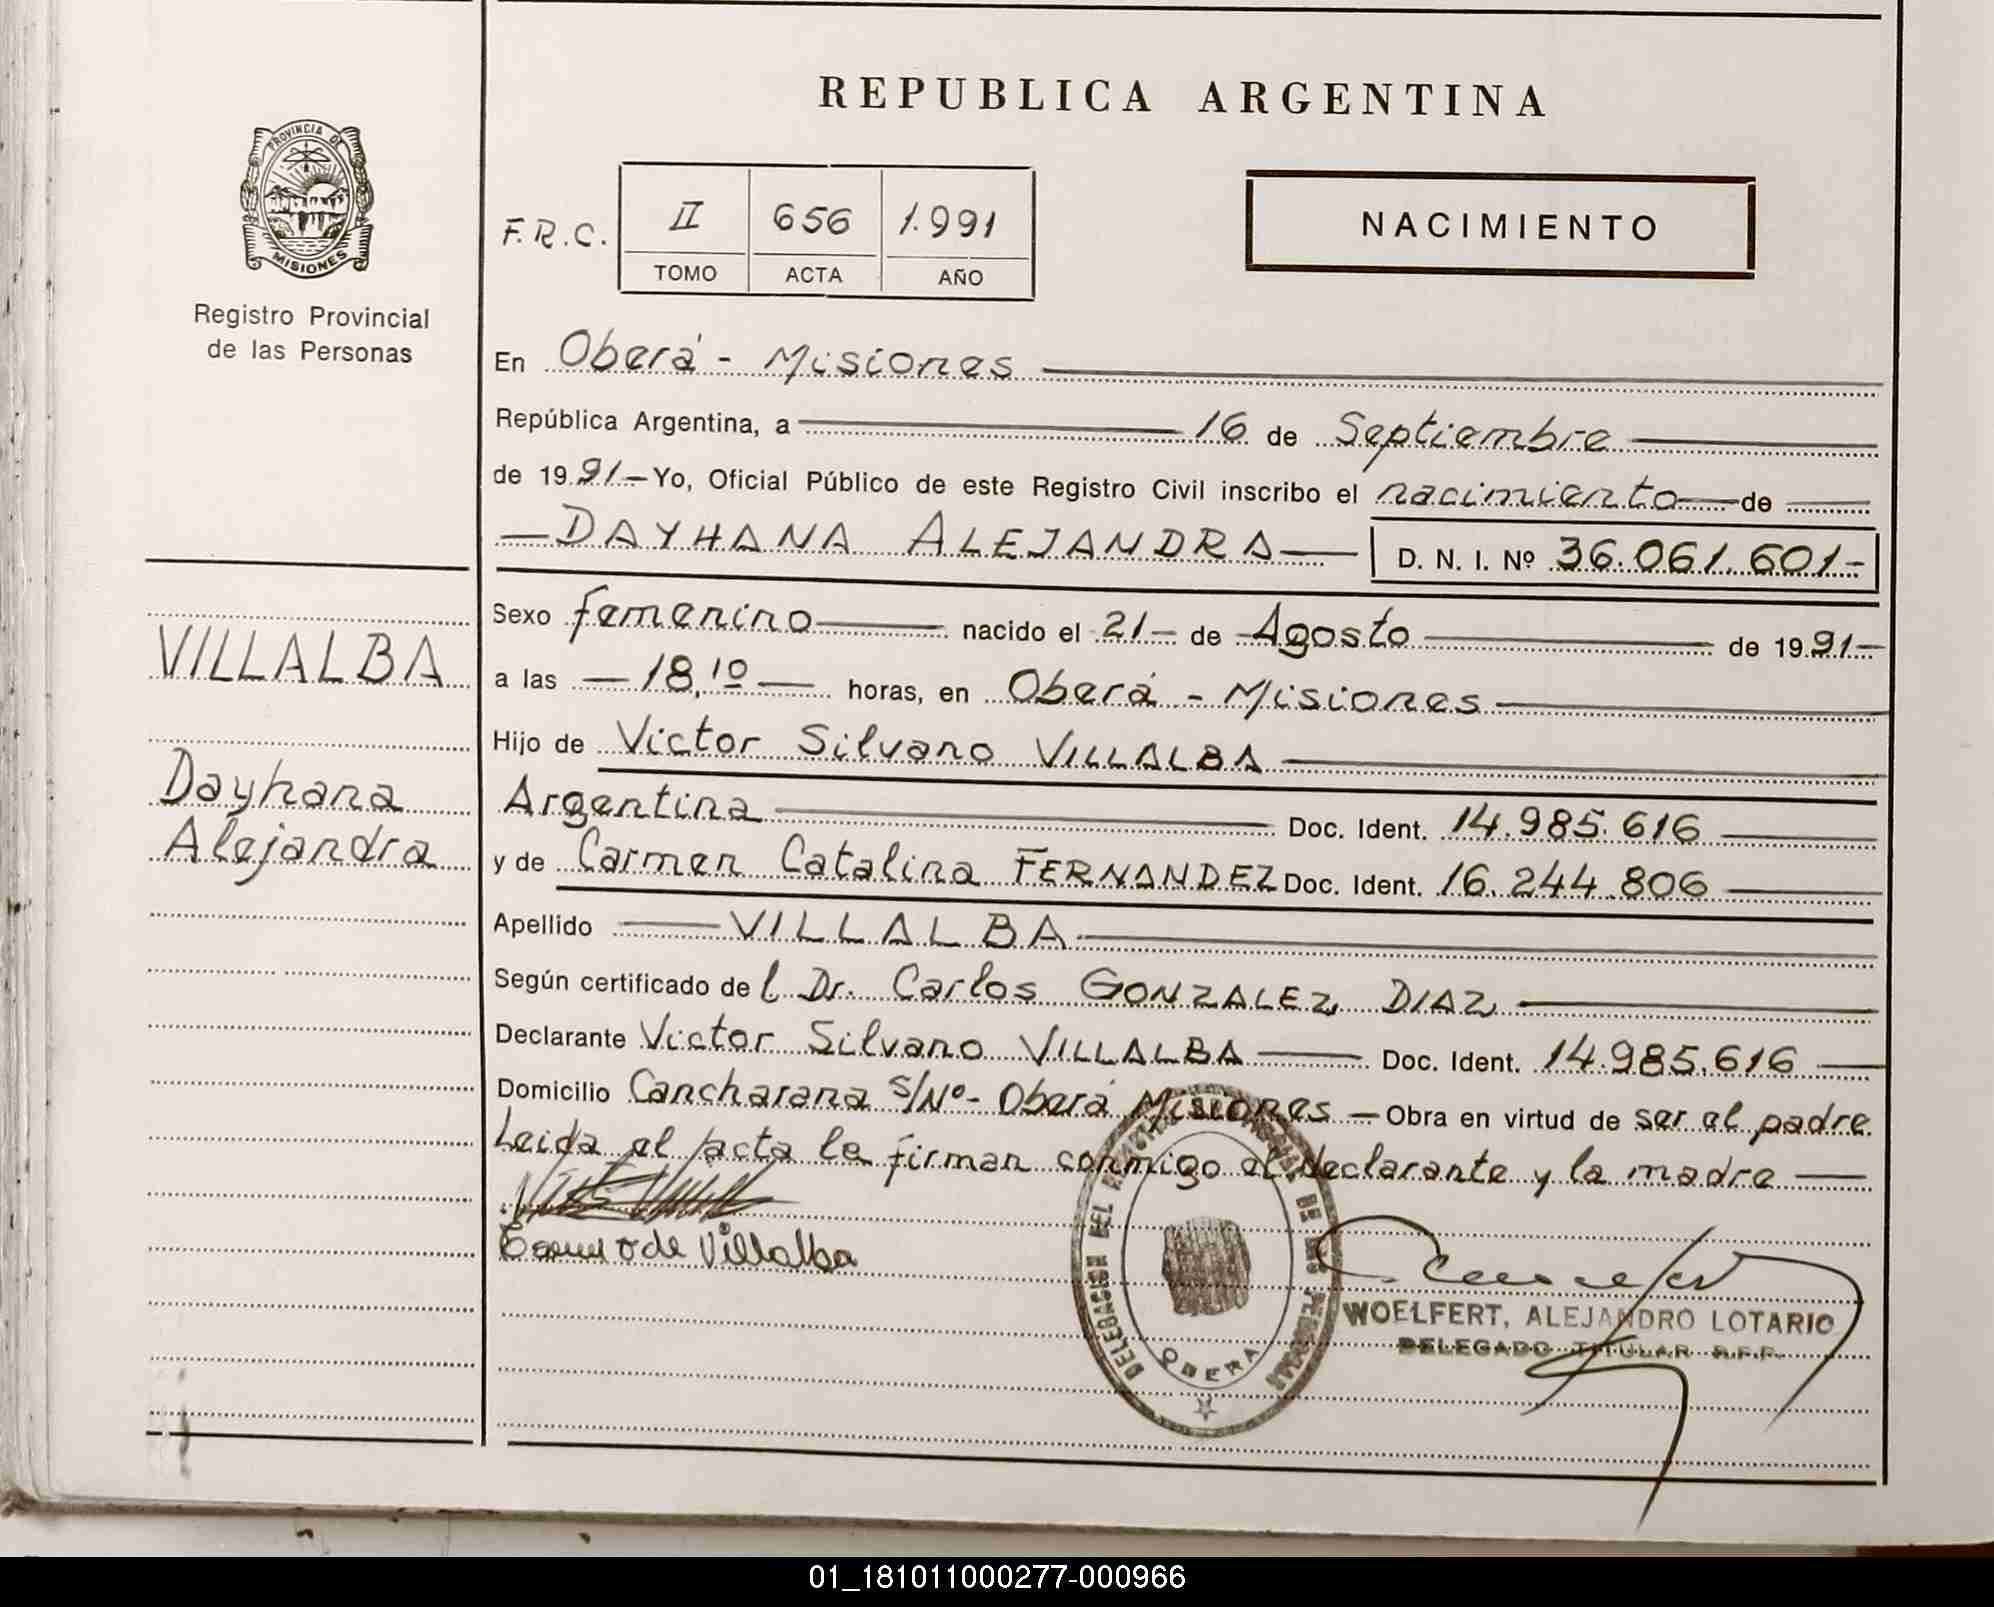 REPUBLICA ARGENTINA
PROVINCIA DE
MISIONES
Registro Provincial
de las Personas
NACIMIENTO
F.R.C. II 656 1.991
TOMO ACTA AÑO
En Oberá - Misiones
República Argentina, a 16 de Septiembre
de 1991.- Yo, Oficial Público de este Registro Civil inscribo el nacimiento de
DAYHANA ALEJANDRA D. N. I. Nº 36.061.601-
VILLALBA
Dayhana
Alejandra
Sexo femenino nacido el 21- de Agosto de 1991.-
a las 18,10 horas, en Oberá - Misiones
Hijo de Victor Silvano VILLALBA
Argentina Doc. Ident. 14.985.616
y de Carmen Catalina FERNANDEZ Doc. Ident. 16.244.806
Apellido VILLALBA
Según certificado del Dr. Carlos GONZALEZ DIAZ
Declarante Victor Silvano VILLALBA Doc. Ident. 14.985.616
Domicilio Cancharana S/Nº- Oberá Misiones - Obra en virtud de ser el padre.
Leida el acta la firman conmigo el declarante y la madre
de Villalba
DELEGACION DEL REGISTRO PROVINCIAL DE LAS PERSONAS
OBERA
WOELFERT, ALEJANDRO LOTARIO
DELEGADO TITULAR
01_181011000277-000966